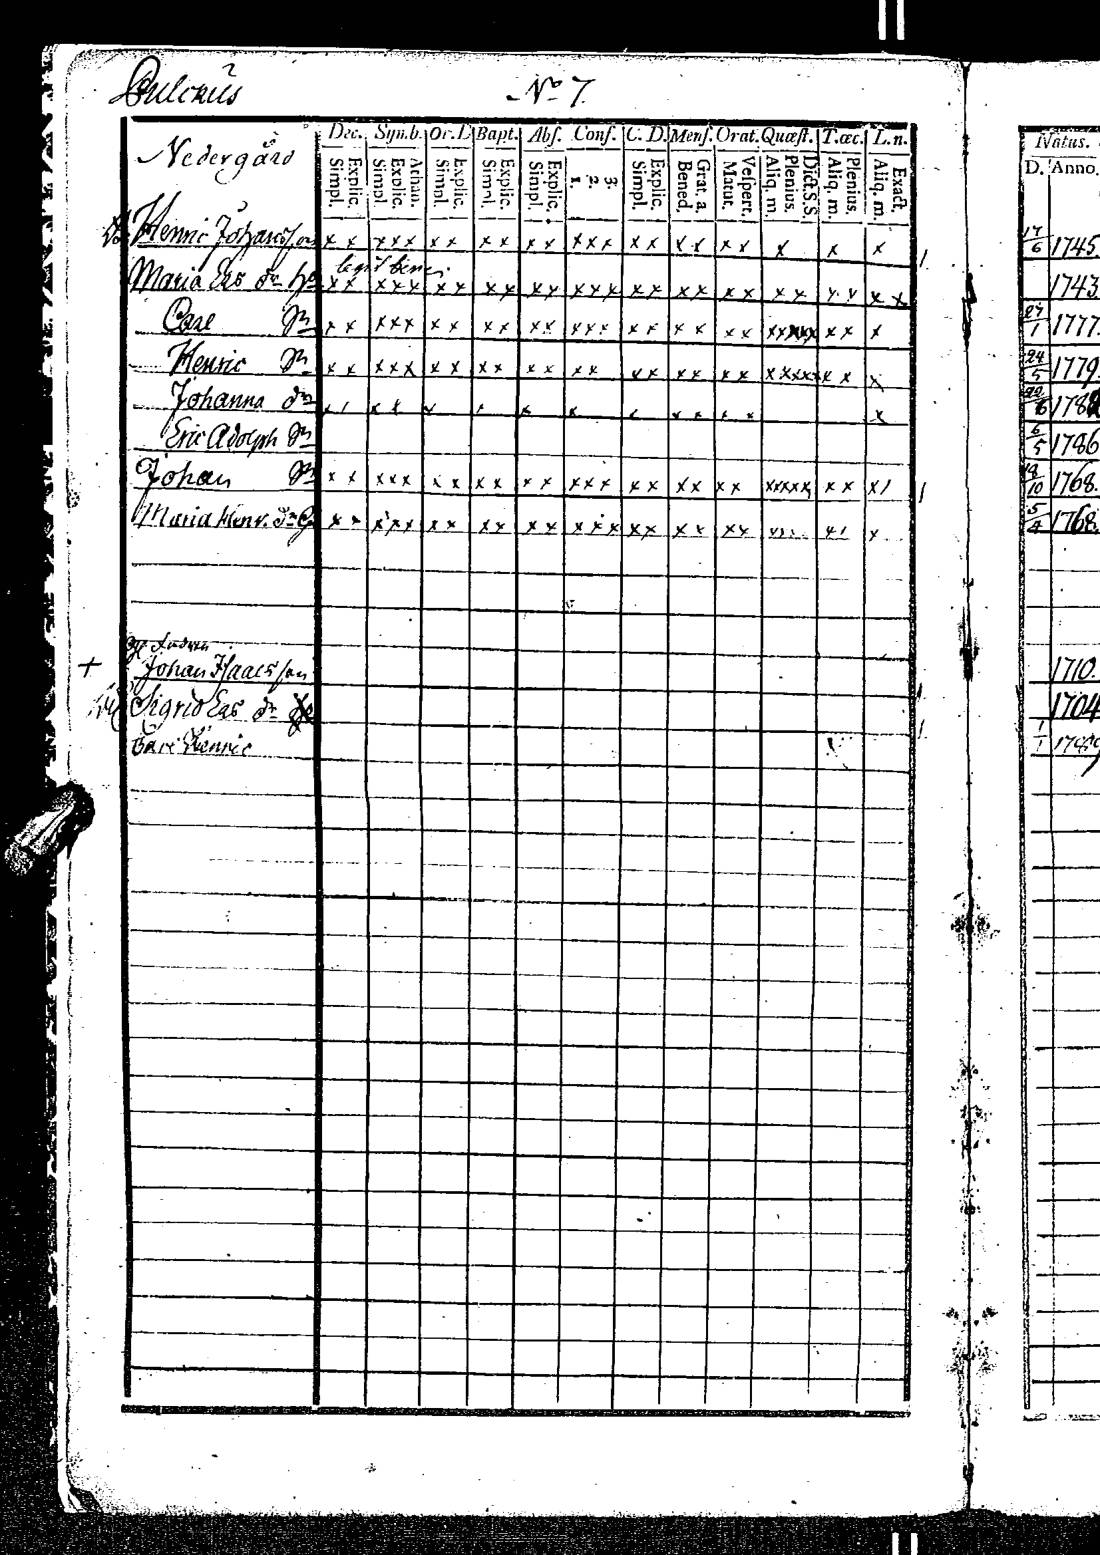 No 7.
Nedergård
Dec. Symb. Or. D. Bapt. Abs. Conf. C. D. Mens. Orat. Quæst. T. œc. L. n.
Explic. Simpl. Athan. Explic. Simpl. Explic. Simpl. Explic. Simpl. Explic. Simpl. 3. 2. 1. Explic. Simpl. Grat. a. Bened. Vespert. Matut. Dict. S. S. Plenius. Aliq. m. Plenius. Aliq. m. Exact. Aliq. m.
Natus.
D. Anno.
Henric Johansson x x x x x x x x x x x x x x x x x x x x x x x 17/6 1745.
legit bene
Maria Ers dr hu x x x x x x x x x x x x x x x x x x x x x x x x x x 1743
Carl Sn x x x x x x x x x x x x x x x x x x x x 27/1 1777.
Henric Sn x x x x x x x x x x x x x x x x x x 24/5 1779.
Johanna dr
Eric Adolph Sn 6/5 1786
Johan Sn x x x x x x x x x x x x x x x x x x x x 18/10 1768.
Maria Henr. dr x x x x x x x x x x x x x x x x x x x x 5/4 1768.
Johan Isaacsson 1710.
Sigrid Ers dr 1704
Carl Henric 1/1